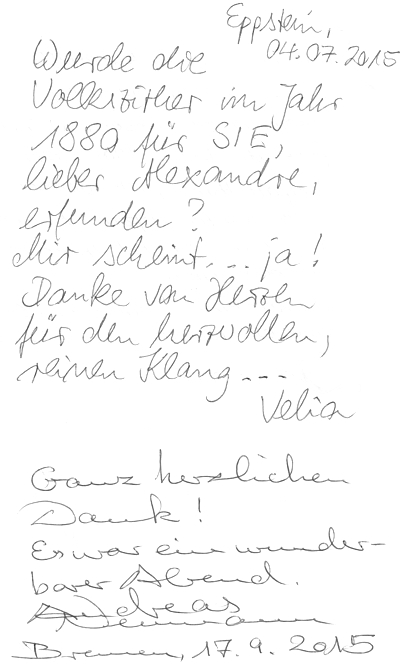 Eppstein,
04.07.2015
Wurde die
Volkszither im Jahr
1880 für SIE,
lieber Alexandre,
erfunden?
Mir scheint... ja!
Danke von Herzen
für den herzvollen,
reinen Klang ---
Velia
Ganz herzlichen
Dank!
Es war ein wunder-
barer Abend.
Andreas
Neumann
Bremen, 17.9.2015